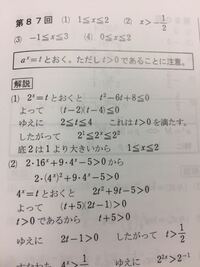 第87回 (1) 1≦x≦2 (2) x>-1/2
(3) −1≦x≦3 (4) 0≦x≦2
aˣ=t とおく。ただし t>0 であることに注意。
解説
(1) 2ˣ=t とおくと t²−6t+8≦0
よって (t−2)(t−4)≦0
ゆえに 2≦t≦4 これは t>0 を満たす。
したがって 2¹≦2ˣ≦2²
底2は1より大きいから 1≦x≦2
(2) 2·16ˣ+9·4ˣ−5>0 から
2·(4ˣ)²+9·4ˣ−5>0
4ˣ=t とおくと 2t²+9t−5>0
よって (t+5)(2t−1)>0
t>0 であるから t+5>0
ゆえに 2t−1>0 したがって t>1/2
4ˣ>1/2 ゆえに 2²ˣ>2⁻¹